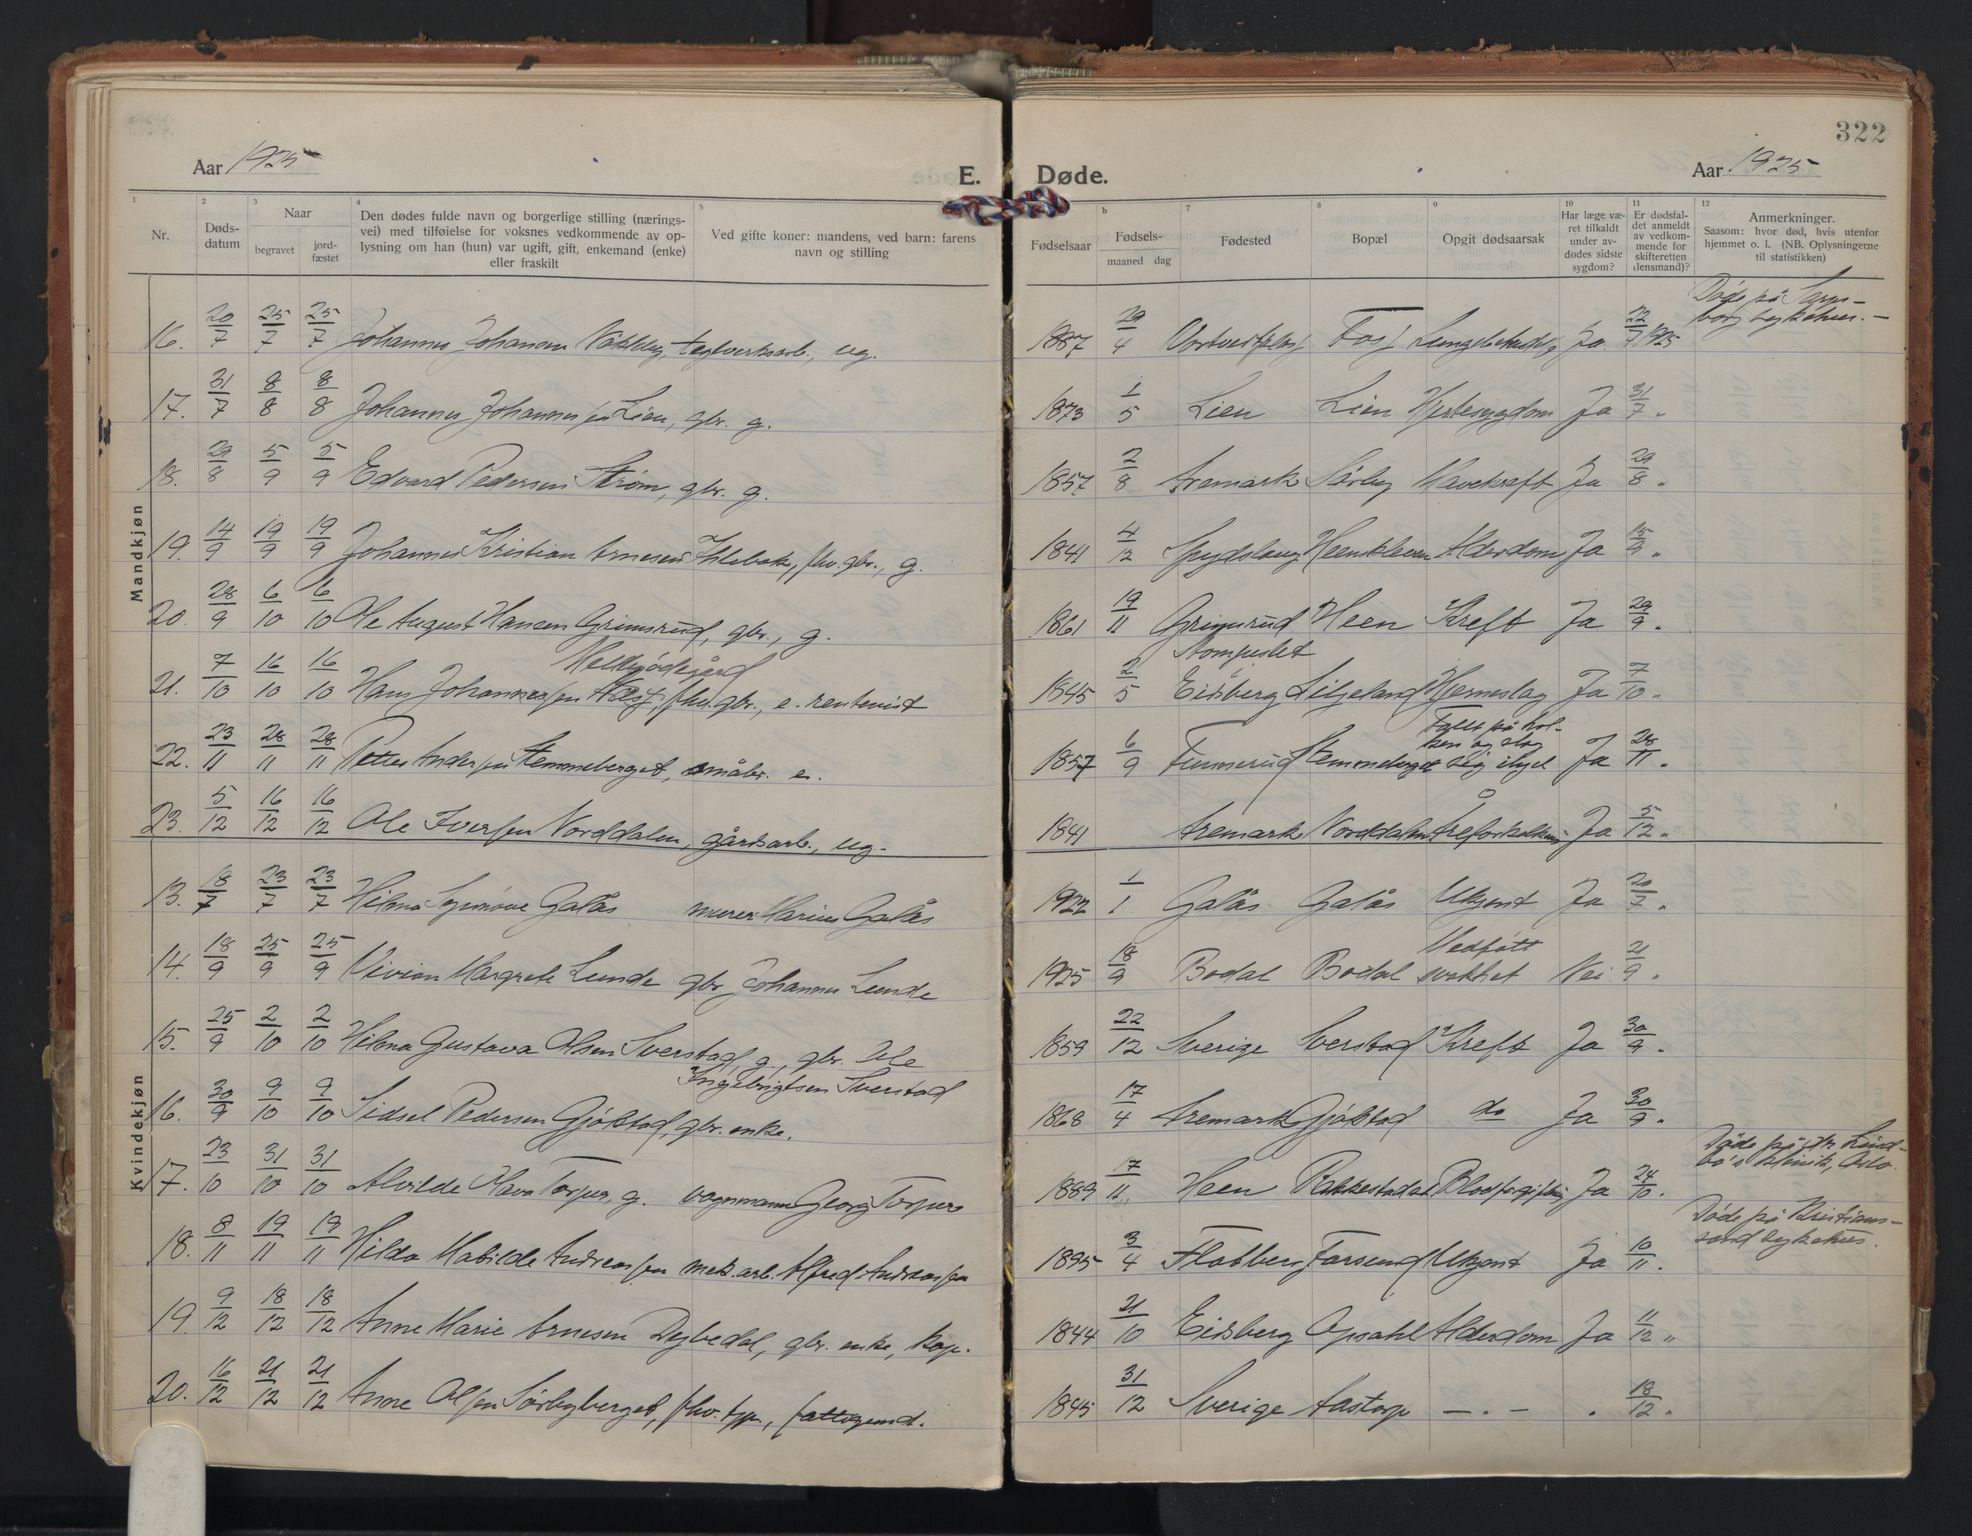 322
Aar 1925 E. Døde. Aar 1925
1 2 3 4 5 6 7 8 9 10 11 12
Nr. Døds-datum Naar begravet jord-fæstet Den dødes fulde navn og borgerlige stilling (nærings-vei) med tilføielse for voksnes vedkommende av op-lysning om han (hun) var ugift, gift, enkemand (enke) eller fraskilt Ved gifte koner: mandens, ved barn: farens navn og stilling Fødselsaar Fødsels- maaned dag Fødested Bopæl Opgit dødsaarsak Har læge væ-ret tilkaldt under av-dødes sidste sygdom? Er dødsfal-det anmeldt av vedkom-mende for skifteretten (lensmand)? Anmerkninger. Saasom: hvor død, hvis utenfor hjemmet o. l. (NB. Oplysningerne til statistikken)
Mandkjøn
Døde på Sarps-
borg sykehus.-
16. 20/7 25/7 25/7 Johannes Johansen Nakkby, teglverksarb., ug. 1887 29/4 Fosj Ja 22/7 1925
17. 31/7 8/8 8/8 Johannes Johannessen Lien, gbr. g. 1873 1/5 Lien Lien Hjertesygdom Ja 31/7 "
18. 29/8 5/9 5/9 Edvard Pedersen Strøm, gbr. g. 1857 2/8 Aremark Sørby Mavekræft Ja 29/8 "
19. 14/9 19/9 19/9 Johannes Kristian Arnesen Ihlebæk, fhv. gbr., g. 1841 4/12 Spydeberg Heenskleven Alderdom Ja 15/9 "
20. 28/9 6/10 6/10 Ole August Hansen Grimsrud, gbr., g. 1861 19/11 Grimsrud Heen Kreft Ja 29/9 "
21. 7/10 16/10 16/10 Hans Johannessen fhv. gbr., e. rentenist 1845 2/5 Eidsberg Liljeland Hjerneslag Ja 7/10 "
Falt på hol-
ken og slog
22. 23/11 28/11 28/11 Petter Andersen Stemmeberget, småbr. e. 1857 6/9 Finnerud Stemmeberget sig ihjel Ja 28/11 "
23. 5/12 16/12 16/12 Ole Iversen Norddalen, gårdsarb., ug. 1841 Aremark Norddalen Åreforkalkning Ja 5/12 "
Kvindekjøn
13. 18/7 23/7 23/7 Helena Synnøve Galås murer Marius Galås 1922 1/1 Galås Galås Ukjent Ja 20/7 "
Medfött
14. 18/9 25/9 25/9 Vivian Margrete Lunde gbr. Johannes Lunde 1925 18/9 Bodal Bodal svakhet Nei 21/9 "
15. 25/9 2/10 2/10 Helena Gustava Olsen Sverstad, g., gbr. Ole 1859 22/12 Sverige Sverstad Kreft Ja 30/9 "
Ingebrigtsen Sverstad
16. 30/9 9/10 9/10 Sidsel Pedersen Gjölstad, gbr. enke. 1868 17/4 Aremark Gjölstad do Ja 30/9 "
Døde på dr. Lind-
bo's klinik, Oslo.
17. 23/10 31/10 31/10 Alvilde Torper, g. vognmann Georg Torper 1889 17/11 Heen Rakkestad Blodforgiftning Ja 24/10 "
Døde på Kristian-
sand sykehus.
18. 8/11 19/11 19/11 Hilda Mabilde Andreassen mek. arb. Alfred Andreassen 1895 3/4 Flatberg Farsund Ukjent Ja 10/11 "
19. 9/12 18/12 18/12 Anne Marie Arnesen Dybedal, gbr. enke, kop. 1844 21/10 Eidsberg Opsahl Alderdom Ja 11/12 "
20. 16/12 21/12 21/12 Anne Olsen Sørbyberget, fhv. tjp., fattiggmd. 1845 31/12 Sverige Aastorp — . — . 18/12 "